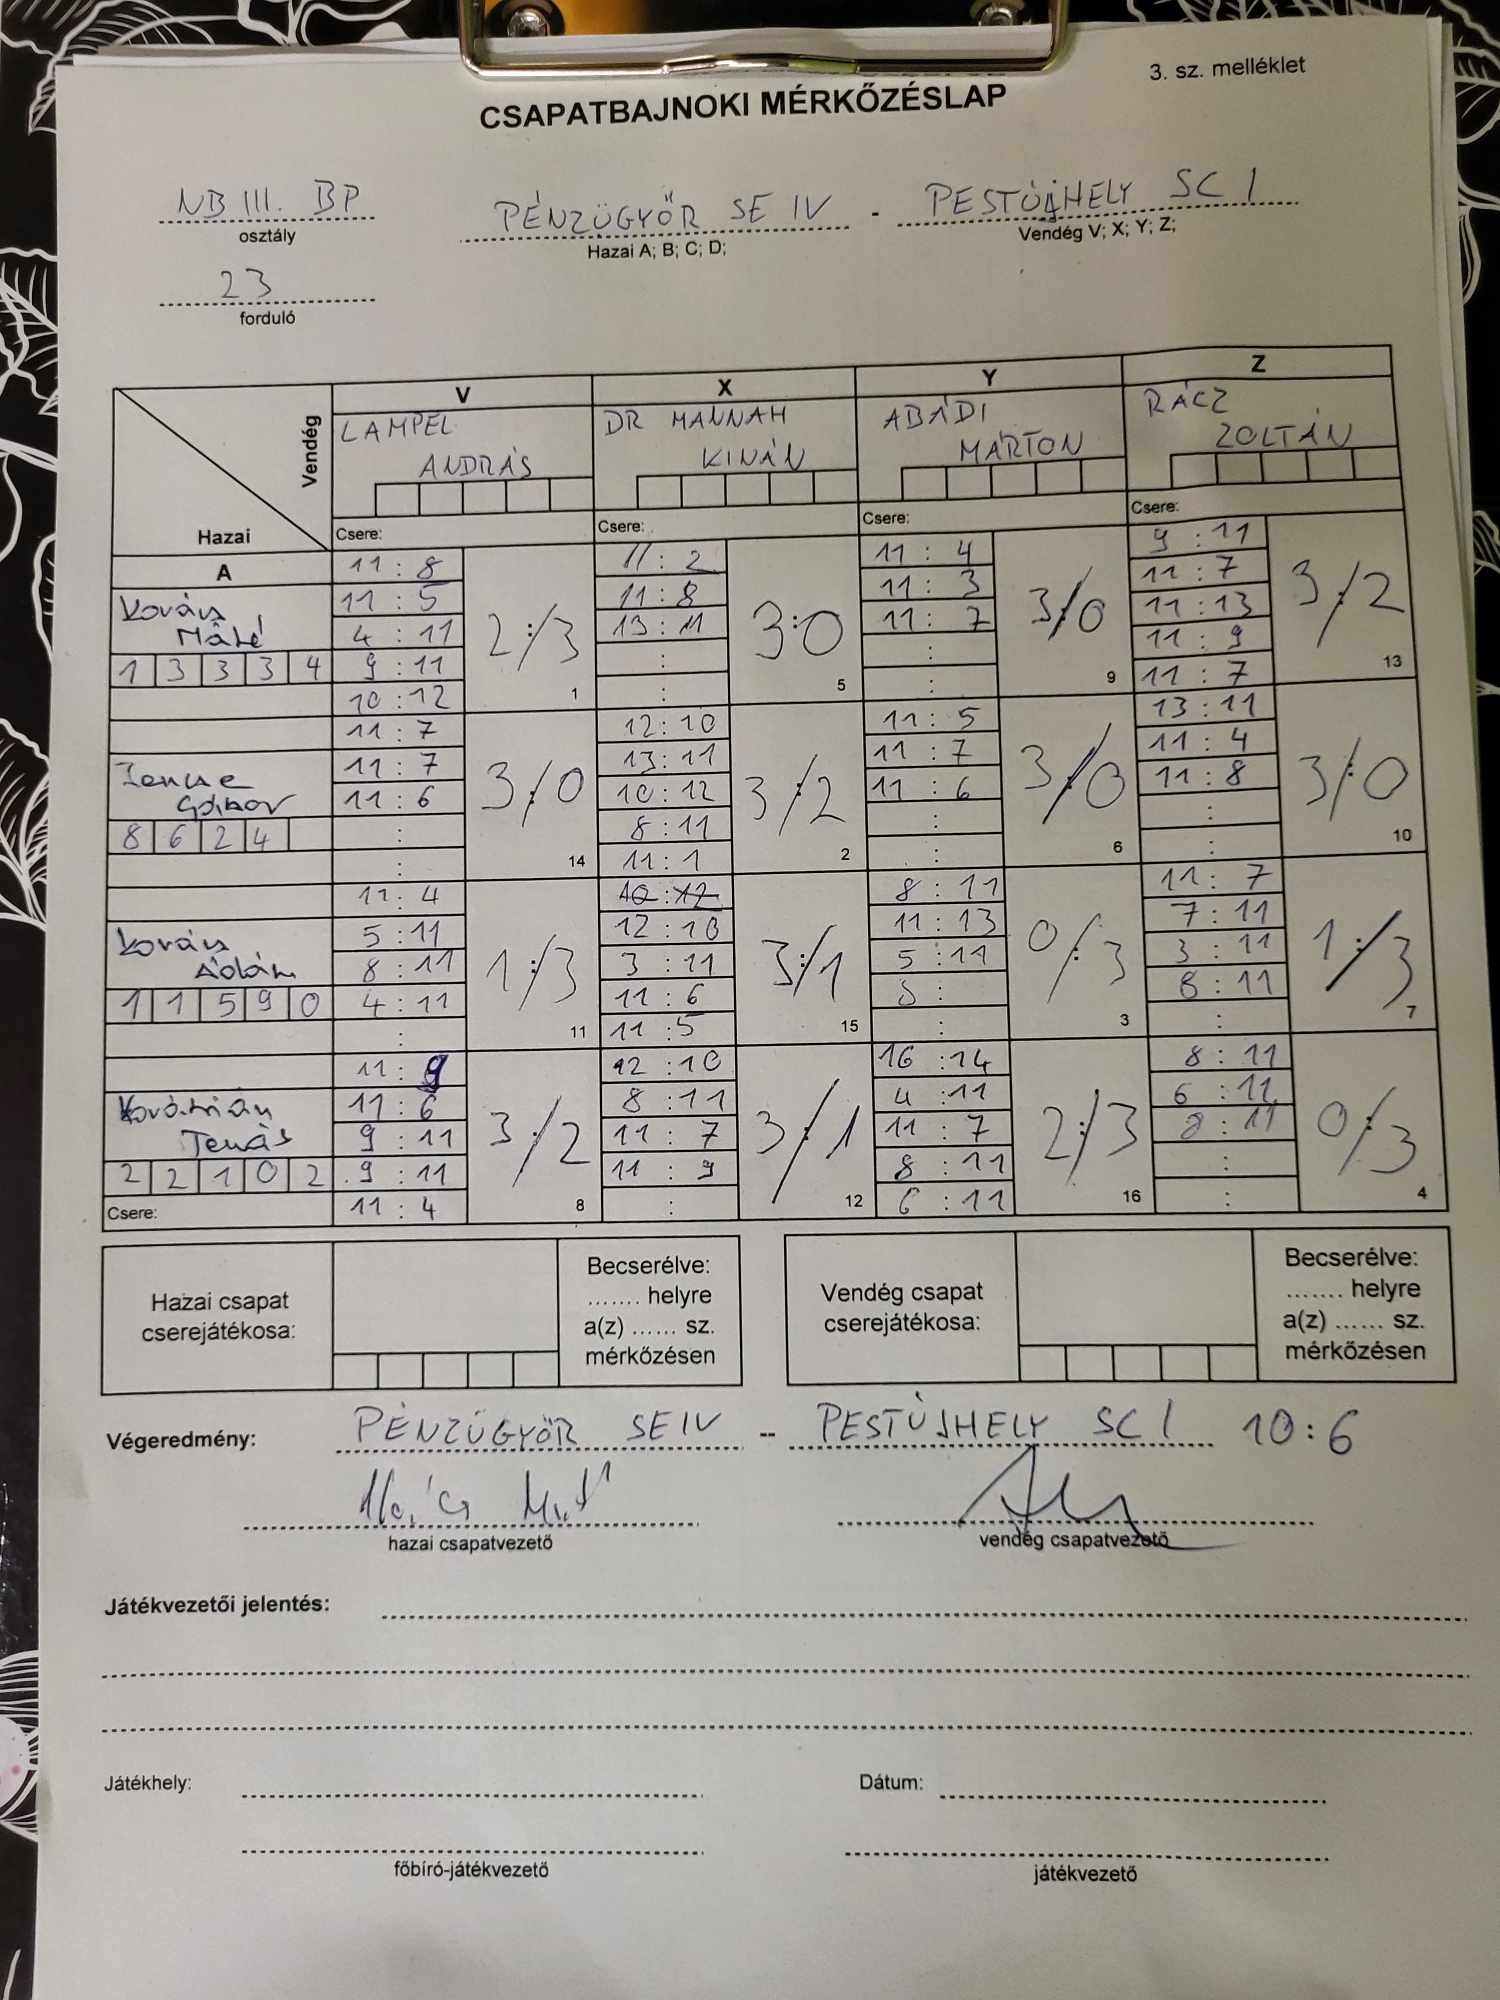 3. sz. melléklet
CSAPATBAJNOKI MÉRKŐZÉSLAP
NB III. BP PÉNZÜGYŐR SE IV - PESTÚJHELY SC I
osztály Hazai A; B; C; D; Vendég V; X; Y; Z;
23
forduló
Vendég
Hazai
V X Y Z
LAMPEL DR MANNAH ABÁDI RÁCZ
ANDRÁS KINÁN MÁRTON ZOLTÁN
Csere: Csere: Csere: Csere:
A
11 : 8 11 : 2 11 : 4 9 : 11
11 : 5 11 : 8 11 : 3 11 : 7
4 : 11 13 : 11 11 : 7 11 : 13
9 : 11 : : 11 : 9
10 : 12 : : 11 : 7
Kovács
Máté
1 3 3 3 4
2:/3 3:0 3:/0 3:/2
1 5 9 13
11 : 7 12 : 10 11 : 5 13 : 11
11 : 7 13 : 11 11 : 7 11 : 4
11 : 6 10 : 12 11 : 6 11 : 8
: 8 : 11 : :
: 11 : 1 : :
Gábor
8 6 2 4
3:/0 3:/2 3:/0 3:/0
14 2 6 10
11 : 4 10 : 12 8 : 11 11 : 7
5 : 11 12 : 10 11 : 13 7 : 11
8 : 11 3 : 11 5 : 11 3 : 11
4 : 11 11 : 6 : 8 : 11
: 11 : 5 : :
Kovács
Ádám
1 1 5 9 0
1:/3 3:/1 0:/3 1:/3
11 15 3 7
11 : 9 12 : 10 16 : 14 8 : 11
11 : 6 8 : 11 4 : 11 6 : 11
9 : 11 11 : 7 11 : 7 8 : 11
9 : 11 11 : 9 8 : 11 :
11 : 4 : 6 : 11 :
Tamás
2 2 1 0 2
Csere:
3:/2 3:/1 2:/3 0:/3
8 12 16 4
Hazai csapat
cserejátékosa:
Becserélve:
....... helyre
a(z) ...... sz.
mérkőzésen
Vendég csapat
cserejátékosa:
Becserélve:
....... helyre
a(z) ...... sz.
mérkőzésen
Végeredmény: PÉNZÜGYŐR SE IV -- PESTÚJHELY SC I 10:6
hazai csapatvezető vendég csapatvezető
Játékvezetői jelentés:
Játékhely: Dátum:
főbíró-játékvezető játékvezető